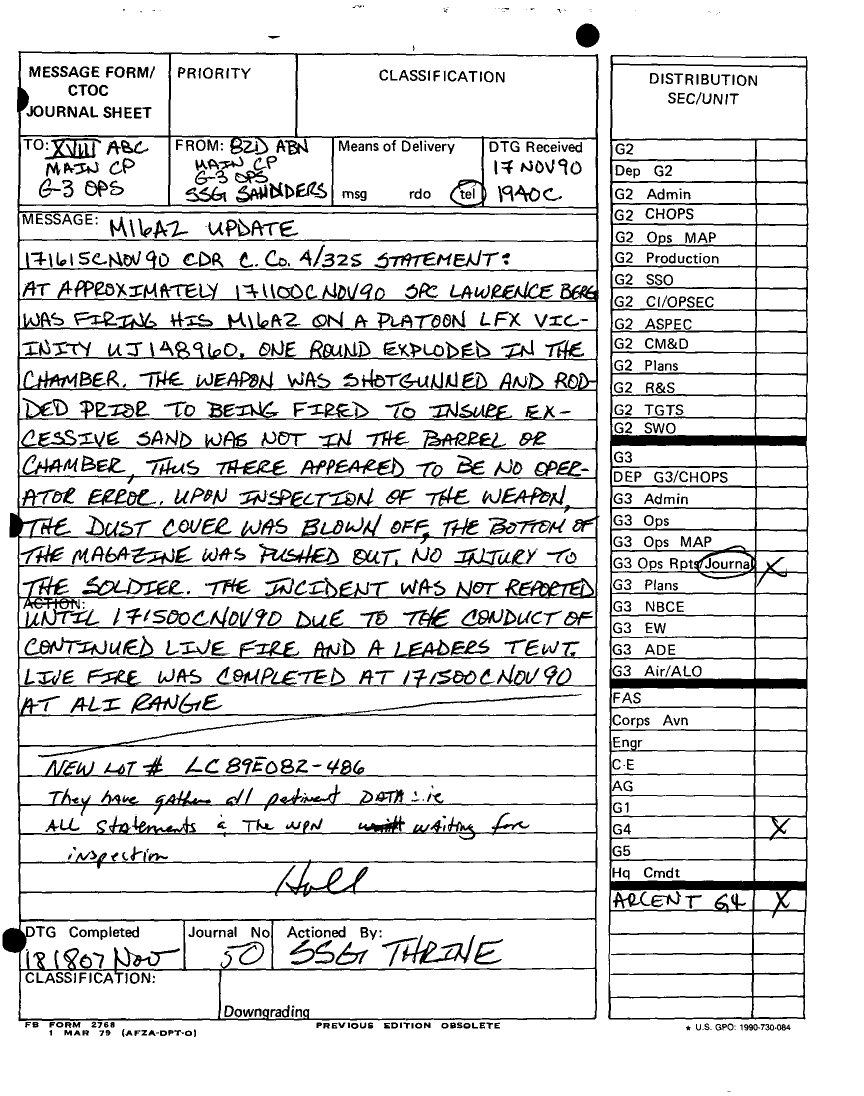 MESSAGE FORM/
CTOC
JOURNAL SHEET
PRIORITY
CLASSIFICATION
TO: XVIII ABC
MAIN CP
G-3 OPS
FROM: 82D ABN
MAIN CP
G-3 OPS
SSG SAUNDERS
Means of Delivery
msg rdo tel
DTG Received
17 NOV90
1940C
MESSAGE: M16A2 UPDATE
171615CNOV90 CDR C. Co. 4/325 STATEMENT:
AT APPROXIMATELY 171100CNOV90 SPC LAWRENCE BERG
WAS FIRING HIS M16A2 ON A PLATOON LFX VIC-
INITY UJ148960. ONE ROUND EXPLODED IN THE
CHAMBER. THE WEAPON WAS SHOTGUNNED AND ROD-
DED PRIOR TO BEING FIRED TO INSURE EX-
CESSIVE SAND WAS NOT IN THE BARREL OR
CHAMBER, THUS THERE APPEARED TO BE NO OPER-
ATOR ERROR. UPON INSPECTION OF THE WEAPON,
THE DUST COVER WAS BLOWN OFF, THE BOTTOM OF
THE MAGAZINE WAS PUSHED OUT. NO INJURY TO
THE SOLDIER. THE INCIDENT WAS NOT REPORTED
ACTION:
UNTIL 171500CNOV90 DUE TO THE CONDUCT OF
CONTINUED LIVE FIRE AND A LEADERS TEWT.
LIVE FIRE WAS COMPLETED AT 171500CNOV90
AT ALI RANGE
NEW LOT # LC89E082-486
They have gathern all pertinent DATA :.ie
ALL Statements & The WPN waiting for
inspection
Hall
DTG Completed
181807 Nov
Journal No
50
Actioned By:
SSG THRINE
CLASSIFICATION:
Downgrading
FB FORM 2768
1 MAR 79 (AFZA-DPT-O)
PREVIOUS EDITION OBSOLETE
DISTRIBUTION
SEC/UNIT
G2
Dep G2
G2 Admin
G2 CHOPS
G2 Ops MAP
G2 Production
G2 SSO
G2 CI/OPSEC
G2 ASPEC
G2 CM&D
G2 Plans
G2 R&S
G2 TGTS
G2 SWO
G3
DEP G3/CHOPS
G3 Admin
G3 Ops
G3 Ops MAP
G3 Ops Rpts/Journal X
G3 Plans
G3 NBCE
G3 EW
G3 ADE
G3 Air/ALO
FAS
Corps Avn
Engr
C-E
AG
G1
G4 X
G5
Hq Cmdt
ARCENT G4 X
* U.S. GPO: 1990-730-084